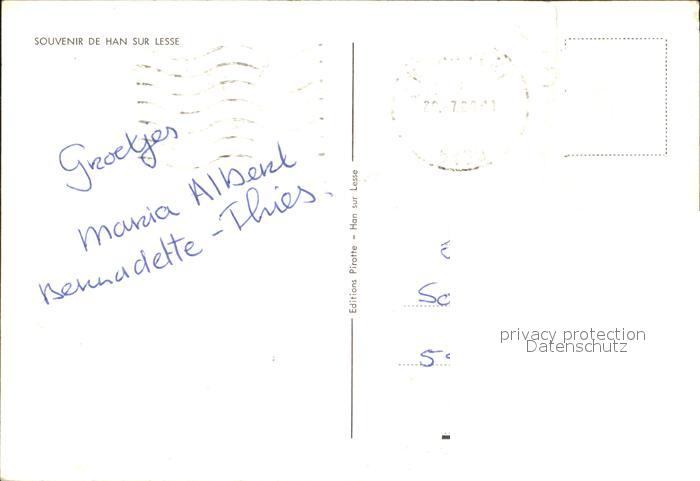 SOUVENIR DE HAN SUR LESSE
Groetjes
Maria Albert
Bernadette - Thies.
Editions Pirotte - Han sur Lesse
So
privacy protection
Datenschutz